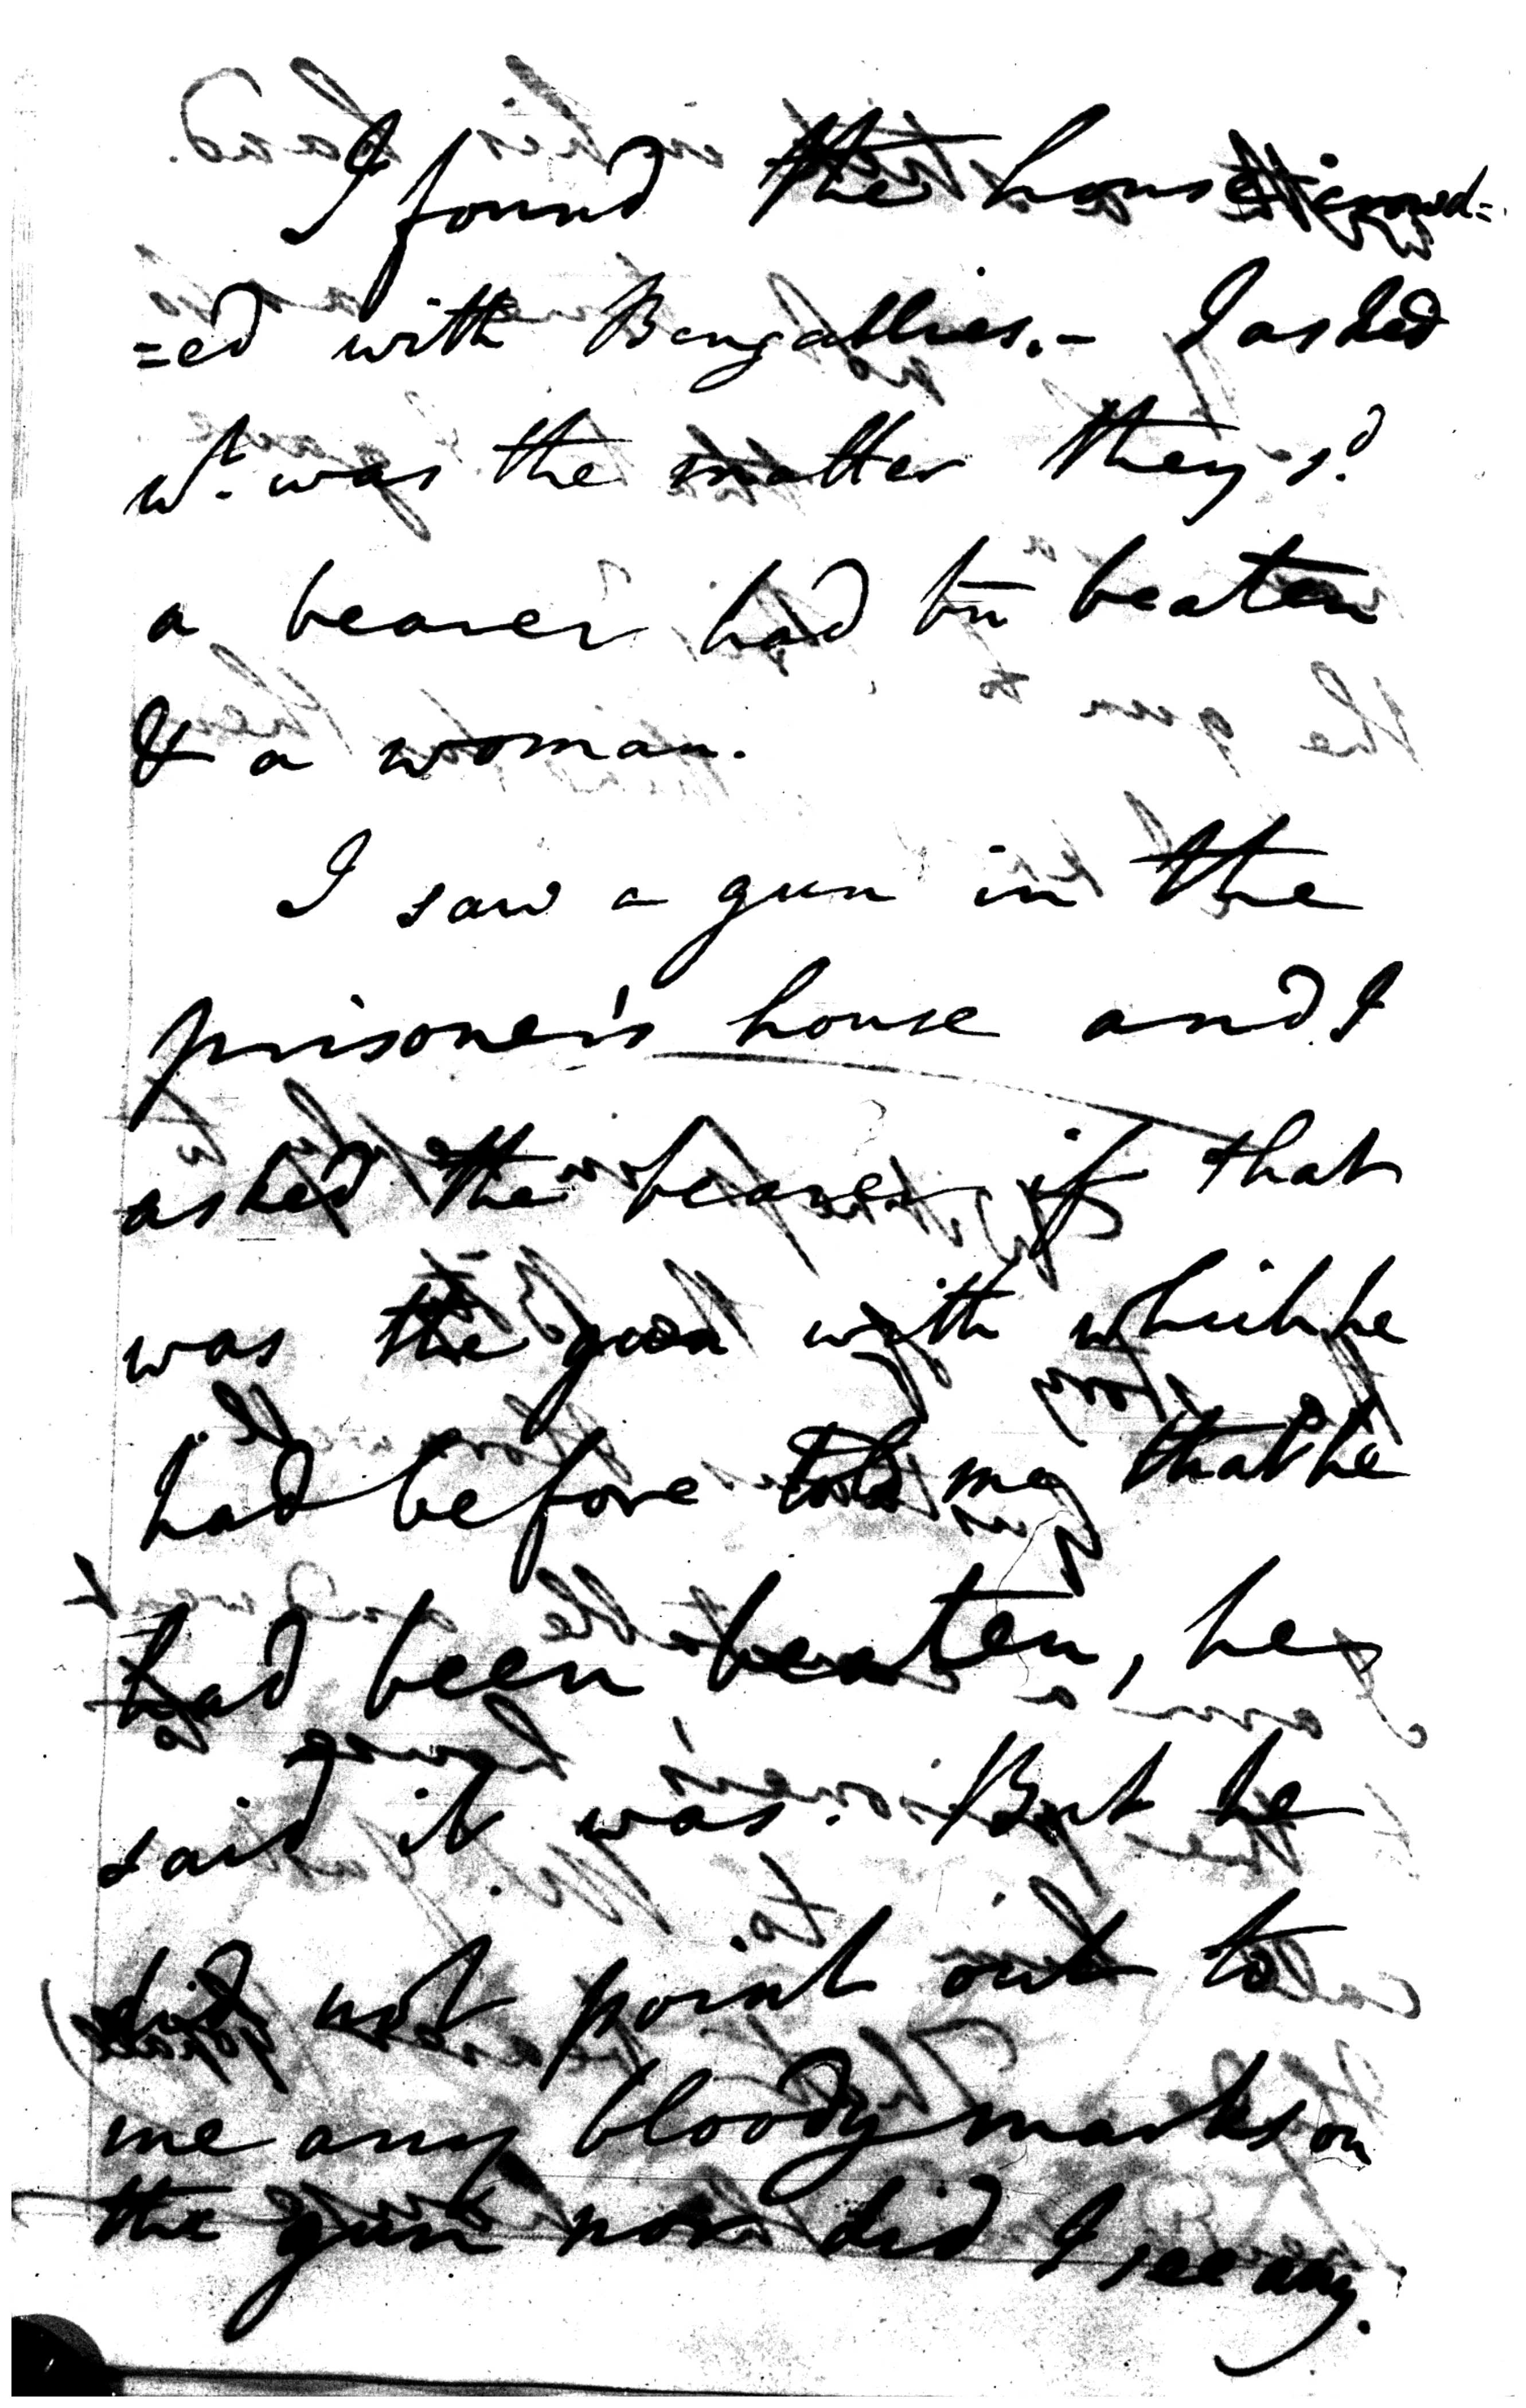 I found the house crowd=
=ed with Bengallies. - I asked
wt. was the matter they sd.
a bearer had bn beaten
& a woman.
I saw a gun in the
prisoner's house and I
asked the bearer if that
was the gun with which he
had before told me that he
had been beaten, he
said it was. But he
did not point out to
me any bloody marks on
the gun nor did I see any.